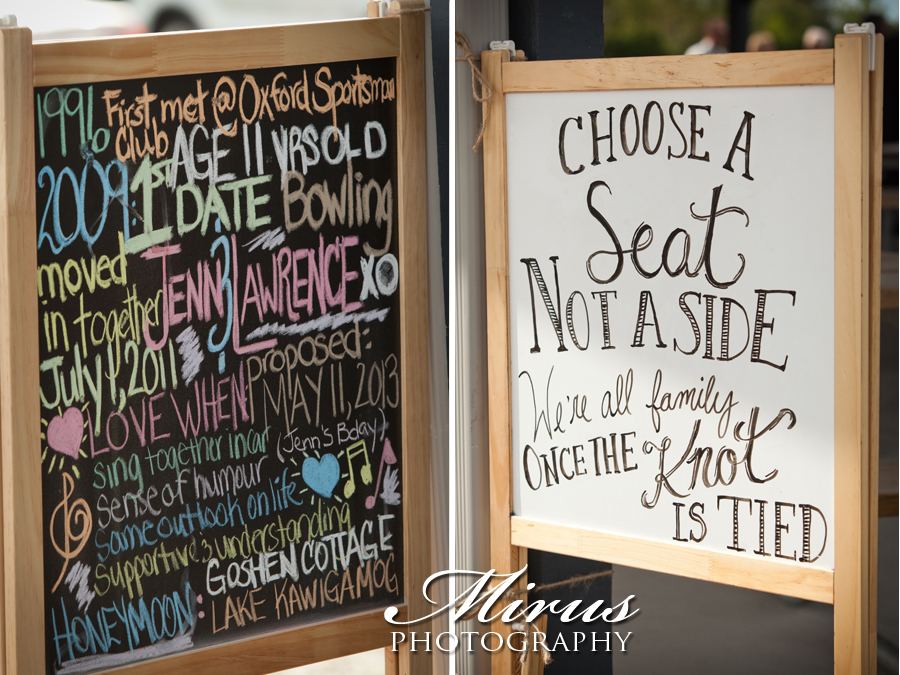 1996 First met @ Oxford Sportsman
Club AGE 11 YRS OLD
2009: 1st DATE Bowling
moved JENN & LAWRENCE XO
in together
July 1, 2011 proposed:
LOVE WHEN MAY 11, 2013
sing together in car (Jenn's Bday)
sense of humour
same outlook on life
supportive & understanding
HONEYMOON: GOSHEN COTTAGE
LAKE KAWIGAMOG
CHOOSE A
Seat
NOT A SIDE
We're all family
ONCE THE Knot
IS TIED
Mirus
PHOTOGRAPHY